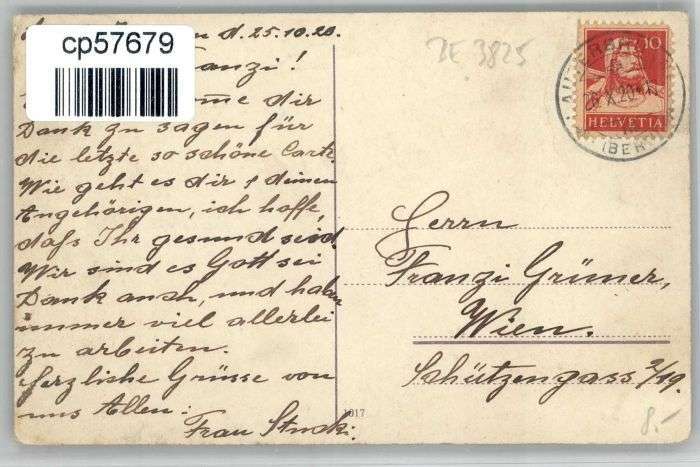 d. 25.10.20.
cp57679
Franzi!
dir
Dank zu sagen für
die letzte so schöne Carte
Wie geht es dir & deinen
Angehörigen, ich hoffe,
dafs Ihr gesund seid.
Wir sind es Gott sei
Dank auch, und haben
immer viel allerlei
zu arbeiten.
Herzliche Grüsse von
uns Allen:
Frau Stucki.
1017
ZE 3825
10
HELVETIA
26.X.20
IBER
Herrn
Franzi Grüner,
Wien.
Schützengass 2/19.
8.-